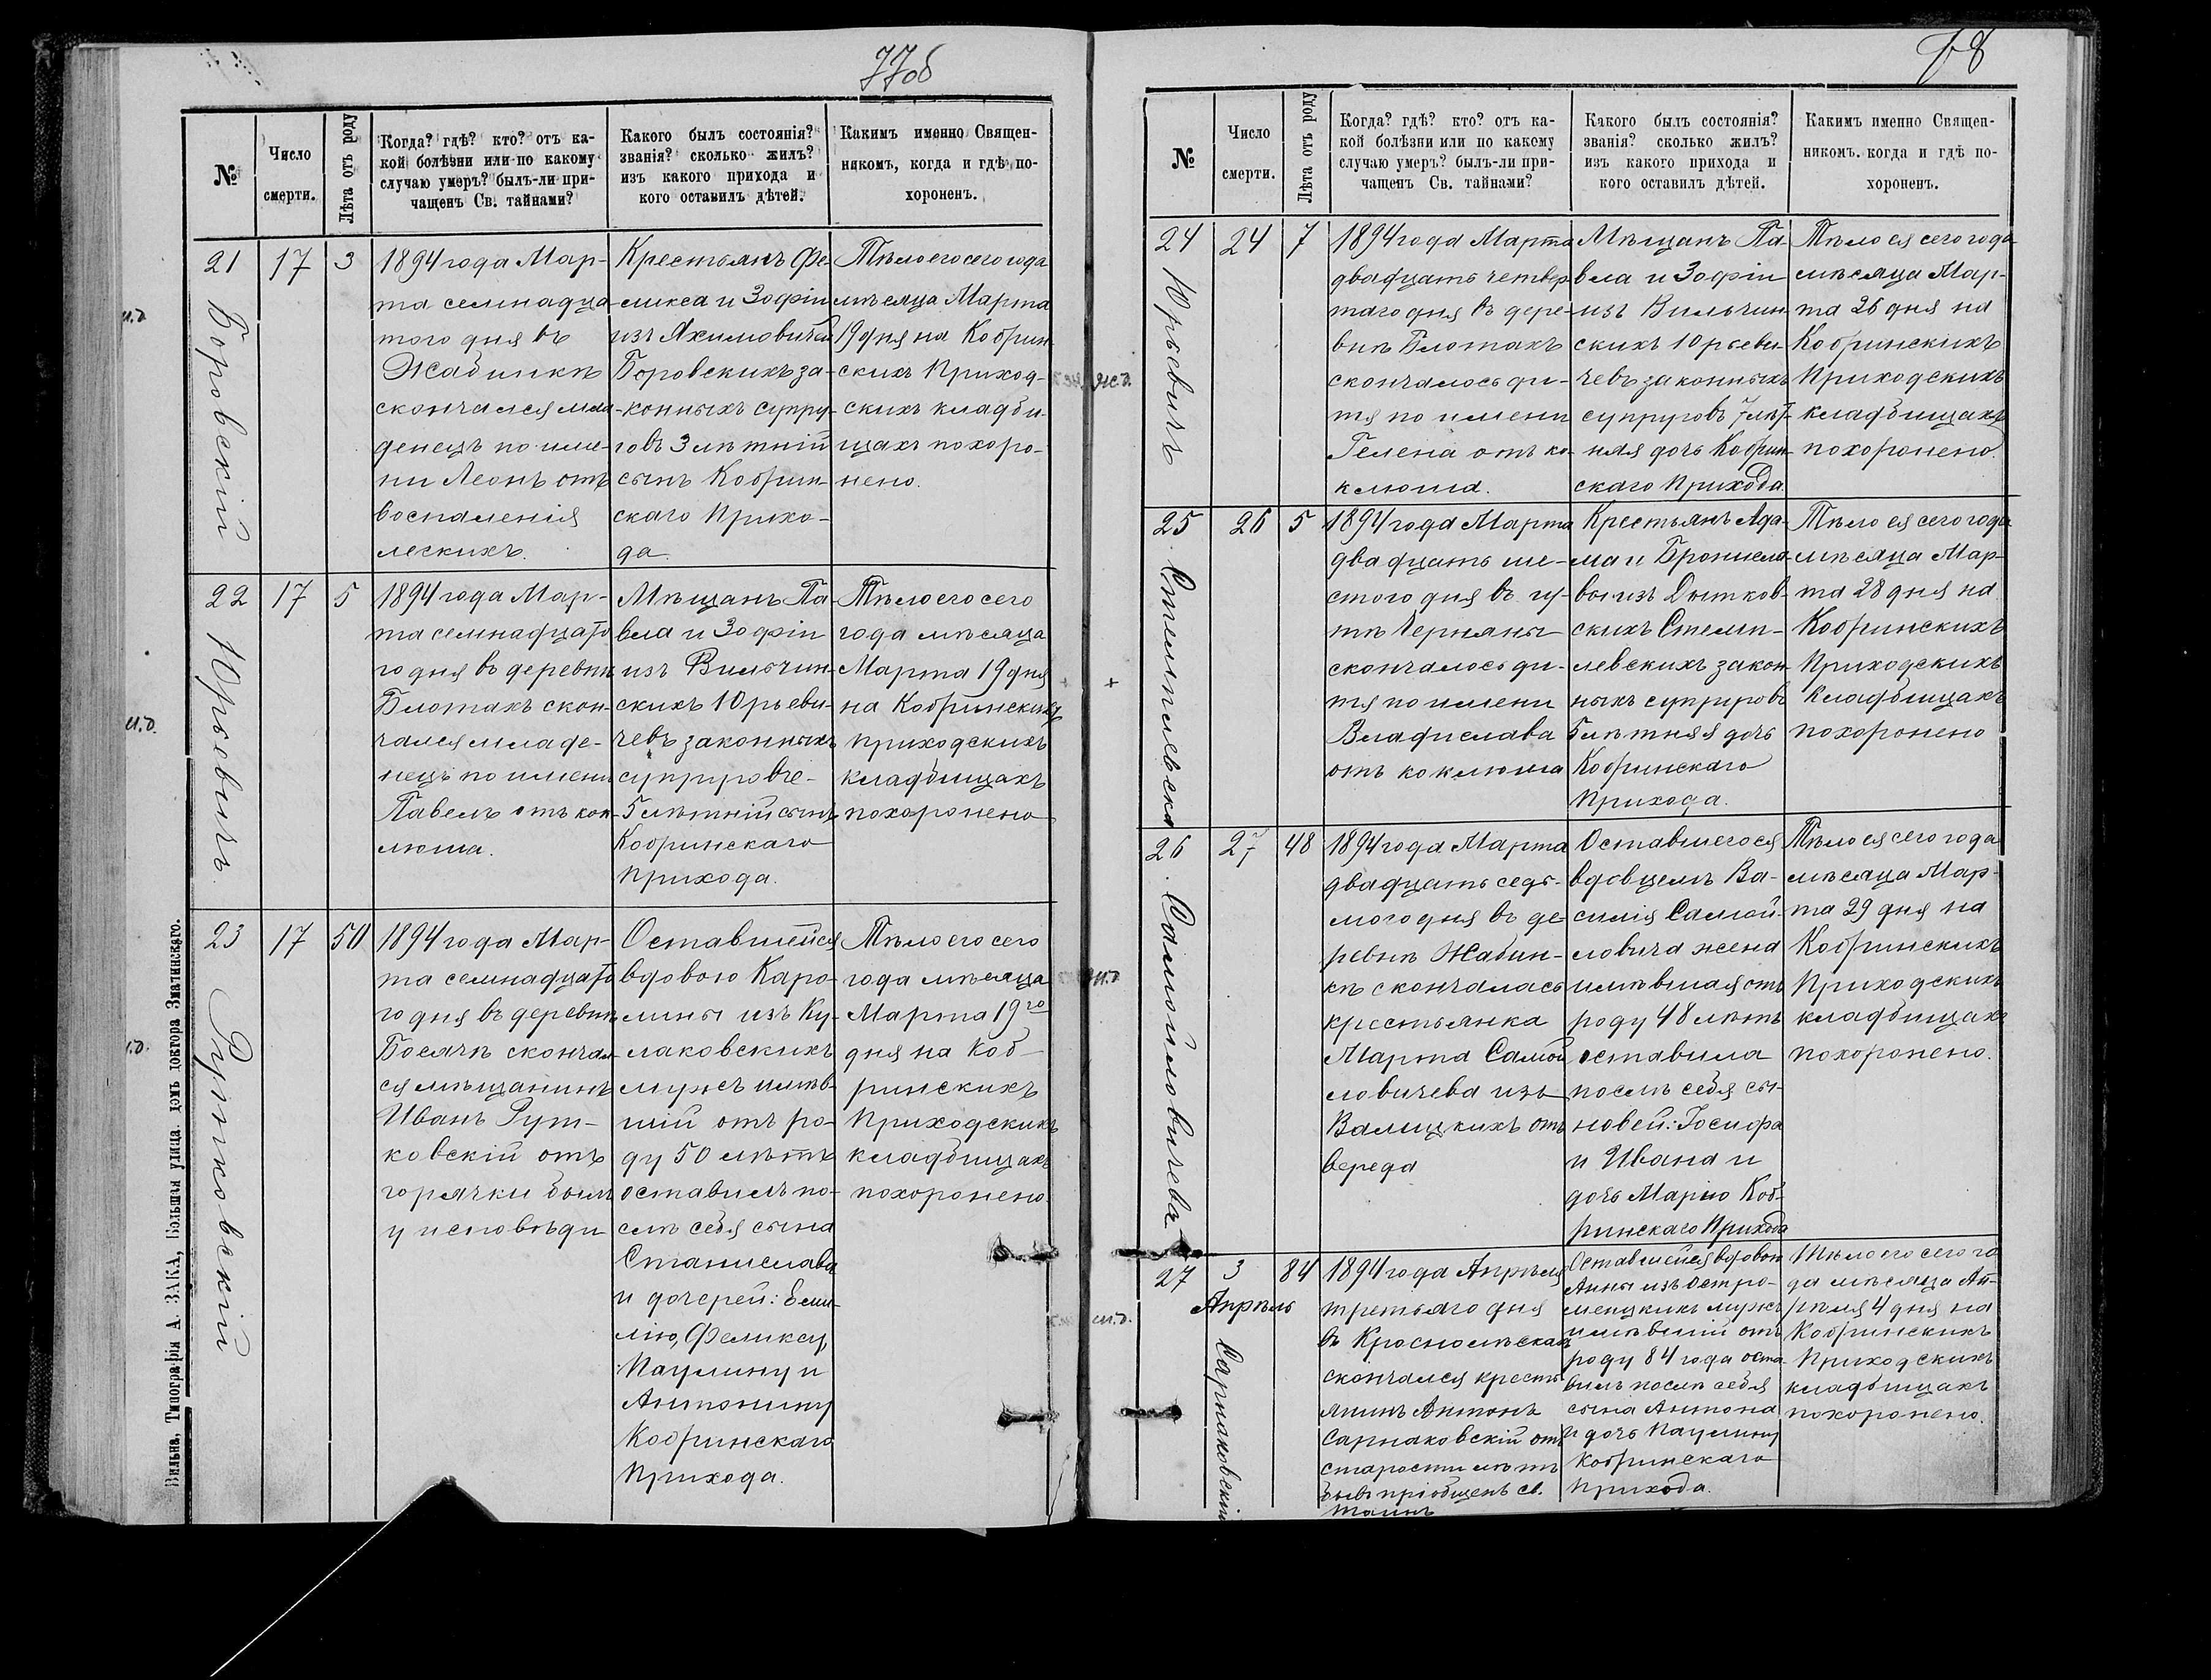 77об
№
Число
смерти.
Лѣта отъ роду
Когда? гдѣ? кто? отъ ка-
кой болѣзни или по какому
случаю умеръ? былъ-ли при-
чащенъ Св. тайнами?
Какого былъ состоянія?
званія? сколько жилъ?
изъ какого прихода и
кого оставилъ дѣтей.
Какимъ именно Священ-
никомъ, когда и гдѣ по-
хороненъ.
21
17
3
Боровскій
1894 года Мар-
та семнадца-
того дня въ
Жабинкѣ
скончался мла-
денецъ по име-
ни Леонъ отъ
воспаленія
легкихъ.
Крестьянъ Фе-
ликса и Зофіи
изъ Якимовичей
Боровскихъ за-
конныхъ супру-
говъ 3 лѣтній
сынъ Кобрин-
скаго Прихо-
да.
Тѣло его сего года
мѣсяца Марта
19 дня на Кобрин-
скихъ Приход-
скихъ кладби-
щахъ похоро-
нено.
22
17
5
Юрьевичъ
1894 года Мар-
та семнадцато
го дня въ деревнѣ
Блотахъ скон-
чался младе-
нецъ по имени
Павелъ отъ кок-
люша.
Мѣщанъ Па-
вла и Зофіи
изъ Вильчин-
скихъ Юрьеви-
чевъ законныхъ
супруговъ
5 лѣтній сынъ
Кобринскаго
Прихода.
Тѣло его сего
года мѣсяца
Марта 19 дня
на Кобринскихъ
Приходскихъ
кладбищахъ
похоронено
23
17
50
Рутковскій
1894 года Мар-
та семнадцато
го дня въ деревнѣ
скончал-
ся мѣщанинъ
Иванъ Рут-
ковскій отъ
горячки былъ
у исповѣди
Оставшейся
вдовою Каро-
лины изъ Ку-
лаковскихъ
мужъ имѣв-
шій отъ ро-
ду 50 лѣтъ
оставилъ по-
слѣ себя сына
Станислава
и дочерей: Еми-
лію, Феликсу,
Паулину и
Антонину
Кобринскаго
Прихода.
Тѣло его сего
года мѣсяца
Марта 19го
дня на Коб-
ринскихъ
Приходскихъ
кладбищахъ
похоронено.
Вильна, Типографія А. ЗАКА, Большая улица домъ доктора Зматинскаго.
78
№
Число
смерти.
Лѣта отъ роду
Когда? гдѣ? кто? отъ ка-
кой болѣзни или по какому
случаю умеръ? былъ-ли при-
чащенъ Св. тайнами?
Какого былъ состоянія?
званія? сколько жилъ?
изъ какого прихода и
кого оставилъ дѣтей.
Какимъ именно Священ-
никомъ. когда и гдѣ по-
хороненъ.
24
24
7
Юрьевичъ
1894 года Марта
двадцать четвер
таго дня въ дере-
внѣ Блотахъ
скончалось ди-
тя по имени
Гелена отъ ко-
клюша.
Мѣщанъ Па-
вла и Зофіи
изъ Вильчин-
скихъ Юрьеви-
чевъ законныхъ
супруговъ 7 лѣт-
няя дочь Кобрин-
скаго Прихода
Тѣло ея сего года
мѣсяца Мар-
та 26 дня на
Кобринскихъ
Приходскихъ
кладбищахъ
похоронено.
25
26
5
1894 года Марта
двадцать ше-
стого дня въ гу-
тѣ Черняны
скончалось ди-
тя по имени
Владислава
отъ коклюша
Крестьянъ Ада-
ма и Брониcла-
вы изъ Дытков-
скихъ Стемп-
левскихъ закон-
ныхъ супруговъ
5 лѣтняя дочь
Кобринскаго
Прихода.
Тѣло ея сего года
мѣсяца Мар-
та 28 дня на
Кобринскихъ
Приходскихъ
Кладбищахъ
похоронено
26
27
48
Самойловичева
1894 года Марта
двадцать седь-
мого дня въ де-
ревнѣ Жабин-
кѣ скончалась
крестьянка
Марта Самой
ловичева изъ
Валицкихъ отъ
вереда
Оставшегося
вдовцемъ Ва-
силія Самой-
ловича жена
имѣвшая отъ
роду 48 лѣтъ
оставила
послѣ себя сы-
новей: Іосифа
и Ивана и
дочь Марію Коб-
ринскаго Прихода
Тѣло ея сего года
мѣсяца Мар-
та 29 дня на
Кобринскихъ
Приходскихъ
кладбищахъ
похоронено.
27
3
Апрѣль
84
Сарнаковскій
1894 года Апрѣля
третьяго дня
въ
скончался кресть
янинъ Антонъ
Сарнаковскій отъ
старости лѣтъ
бывъ пріобщенъ св.
таинъ
Оставшейся вдовою
Анны изъ Остро-
мецкихъ мужъ
имѣвшій отъ
роду 84 года оста-
вилъ послѣ себя
сына Антона
и дочь Паулину
Кобринскаго
Прихода.
Тѣло его сего го
да мѣсяца Ап-
рѣля 4 дня на
Кобринскихъ
Приходскихъ
кладбищахъ
похоронено.